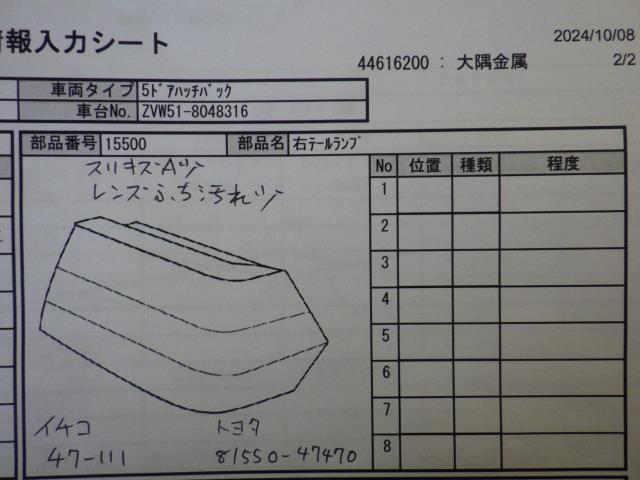 情報入力シート
2024/10/08
44616200 : 大隅金属
2/2
車両タイプ 5ﾄﾞｱﾊｯﾁﾊﾞｯｸ
車台No. ZVW51-8048316
部品番号 15500 部品名 右ﾃｰﾙﾗﾝﾌﾟ
スリキズAツ
レンズふち汚れツ
No 位置 種類 程度
1
2
3
4
5
6
7
8
イチコ トヨタ
47-111 81550-47470